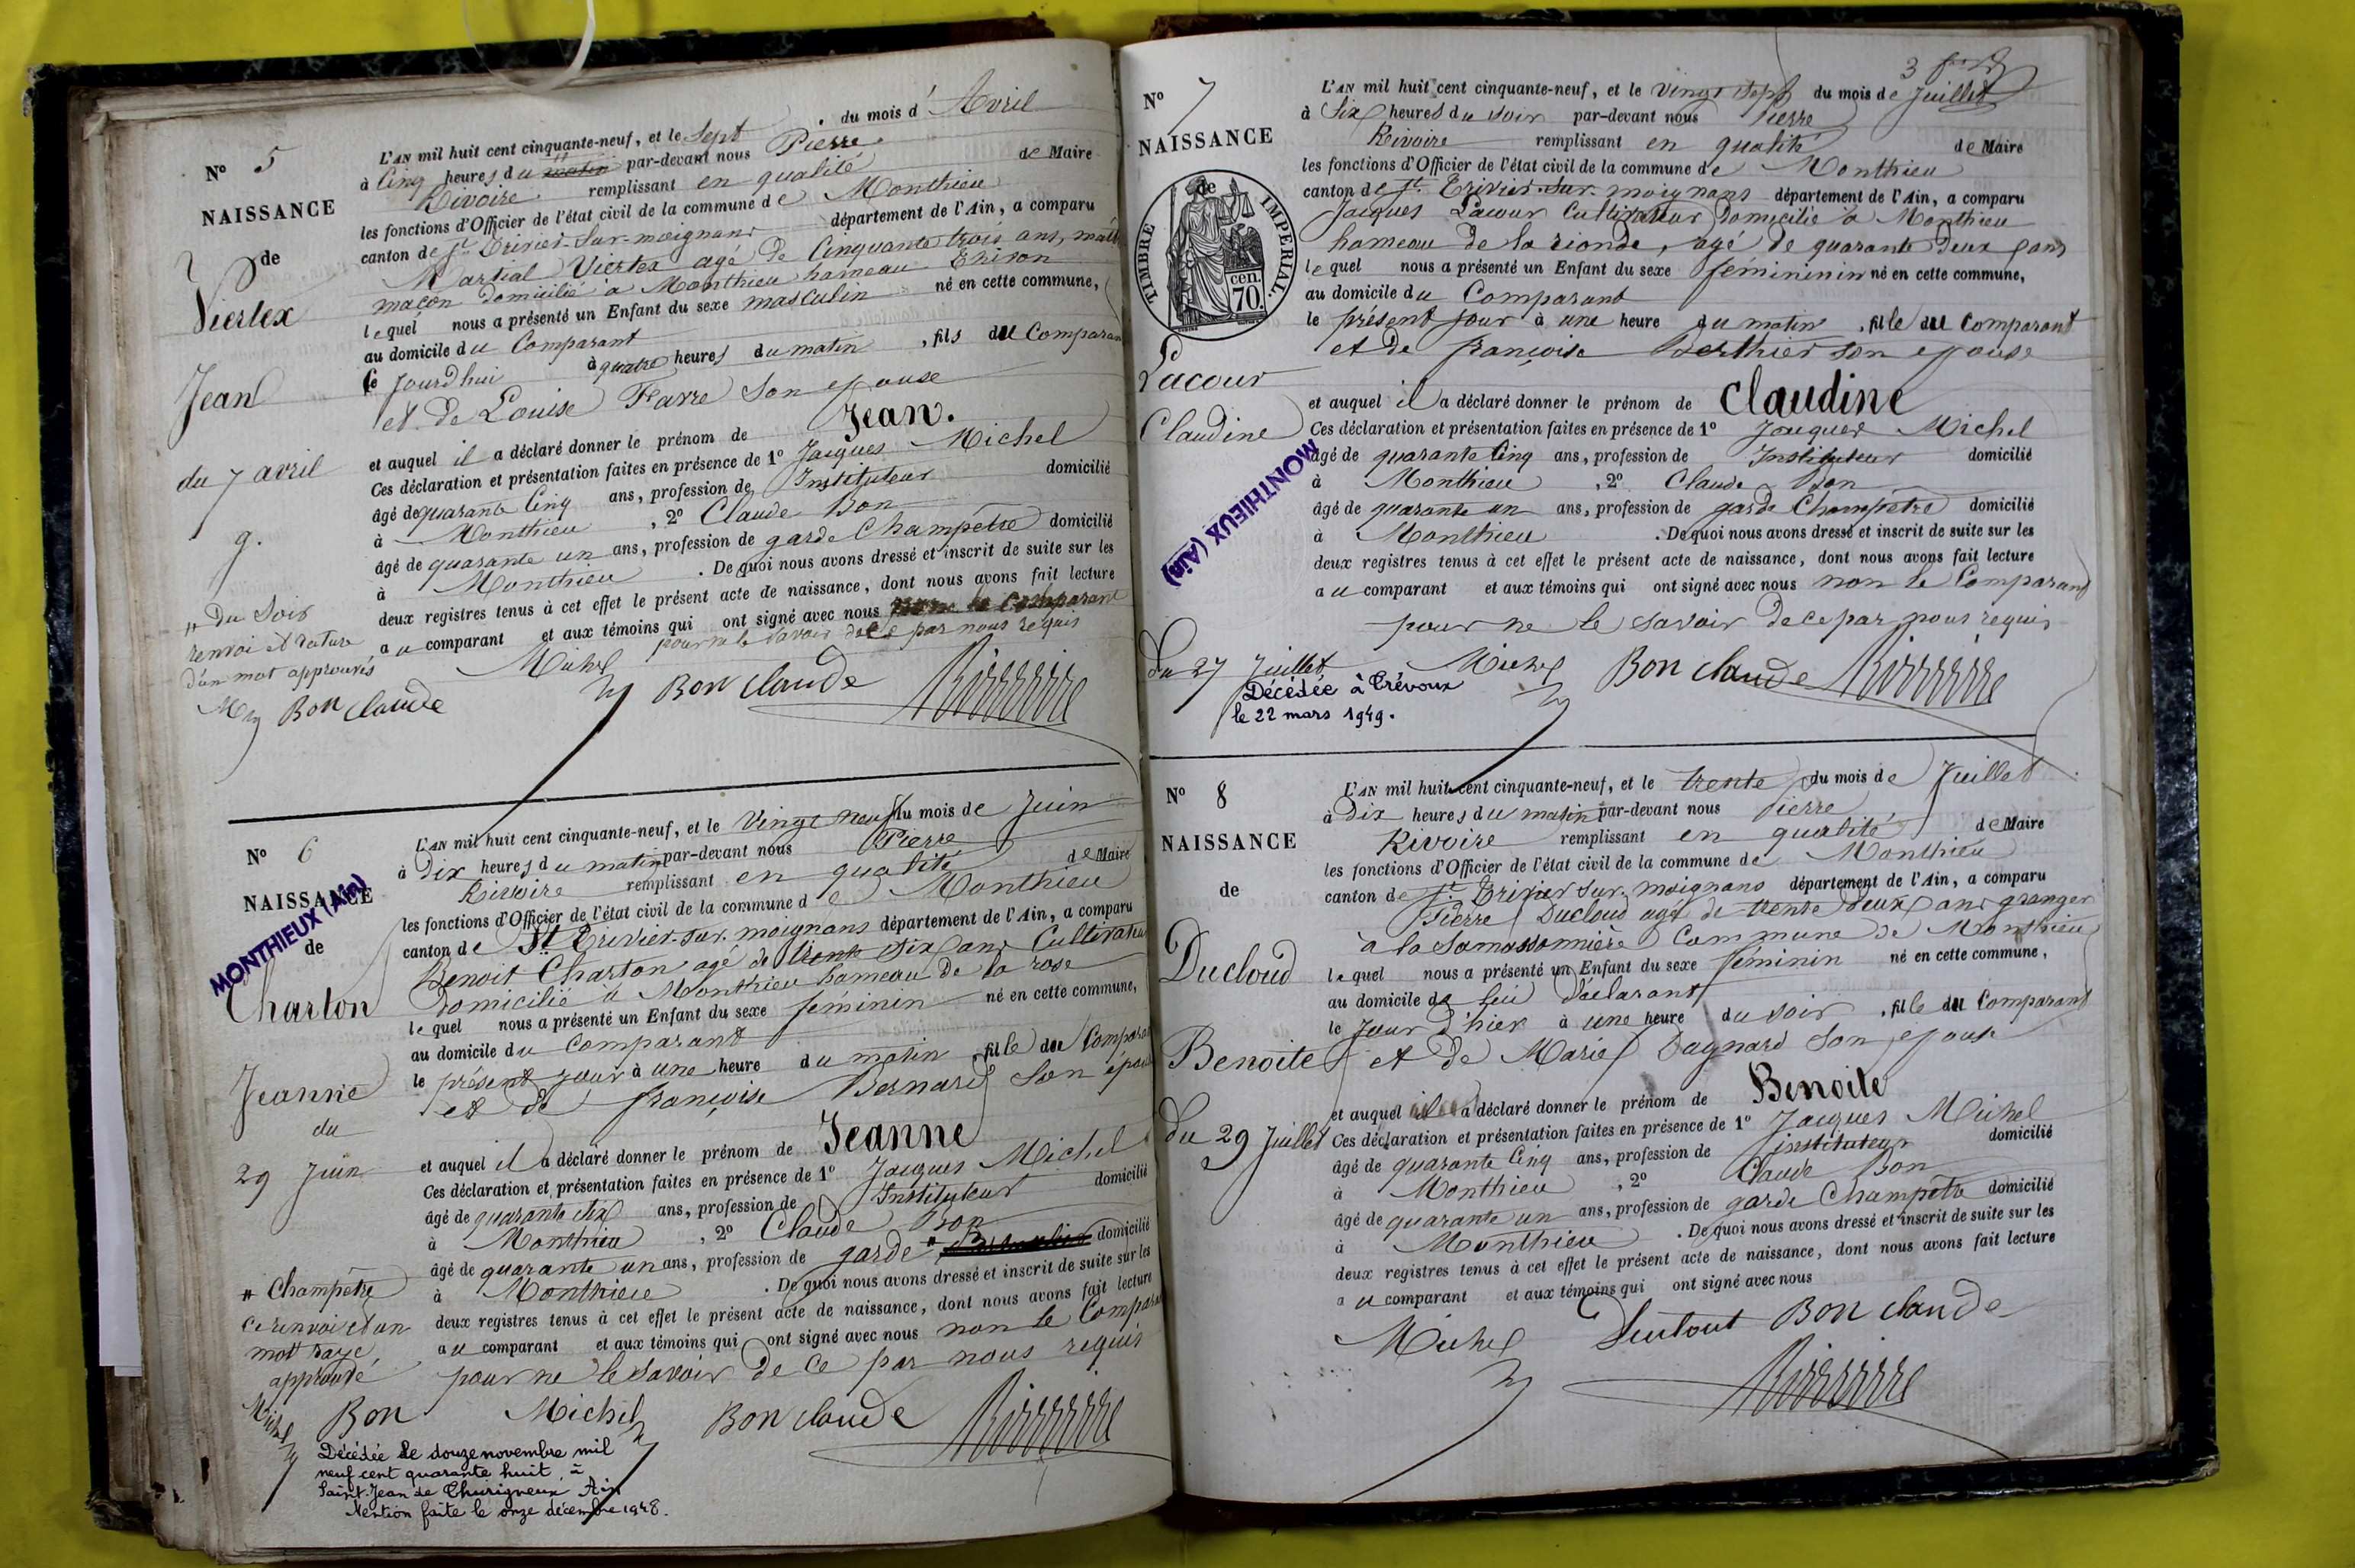 N° 5
NAISSANCE
de
Viertex
Jean
du 7 avril
9.
L'AN mil huit cent cinquante-neuf, et le Sept du mois d' Avril
à Cinq heures du matin par-devant nous Pierre
Rivoire remplissant en qualité de Maire
les fonctions d'Officier de l'état civil de la commune de Monthieu
canton de St Trivier-Sur-moignans département de l'Ain, a comparu
Martial Viertex agé de Cinquante trois ans,
maçon domicilié à Monthieu hameau
lequel nous a présenté un Enfant du sexe masculin né en cette commune,
au domicile du Comparant
le Jourdhui à quatre heures du matin, fils du Comparant
et de Louise Favre Son epouse
et auquel il a déclaré donner le prénom de Jean.
Ces déclaration et présentation faites en présence de 1° Jacques Michel
âgé de quarante Cinq ans, profession de Instituteur domicilié
à Monthieu, 2° Claude Bon
âgé de quarante un ans, profession de garde Champêtre domicilié
à Monthieu. De quoi nous avons dressé et inscrit de suite sur les
deux registres tenus à cet effet le présent acte de naissance, dont nous avons fait lecture
au comparant et aux témoins qui ont signé avec nous non le Comparant
pour ne le savoir de ce par nous requis
" Du Soir
renvoi et rature
d'un mot approuvés
M Bon claude
Michel Bon claude Rivoire
N° 6
NAISSANCE
MONTHIEUX (Ain)
de
Charton
Jeanne
du
29 Juin
L'AN mil huit cent cinquante-neuf, et le Vingt neuf du mois de Juin
à Dix heures du matin par-devant nous Pierre
Rivoire remplissant en qualité de Maire
les fonctions d'Officier de l'état civil de la commune de Monthieu
canton de St Trivier-sur-moignans département de l'Ain, a comparu
Benoit Charton agé de trente Six ans Cultivateur
domicilié à Monthieu hameau de la rose
lequel nous a présenté un Enfant du sexe féminin né en cette commune,
au domicile du Comparant
le présent jour à une heure du matin, fille du Comparant
et de françoise Bernard Son épouse
et auquel il a déclaré donner le prénom de Jeanne
Ces déclaration et présentation faites en présence de 1° Jacques Michel
âgé de quarante six ans, profession de Instituteur domicilié
à Monthieu, 2° Claude Bon
âgé de quarante un ans, profession de garde " domicilié
à Monthieu. De quoi nous avons dressé et inscrit de suite sur les
deux registres tenus à cet effet le présent acte de naissance, dont nous avons fait lecture
au comparant et aux témoins qui ont signé avec nous non le Comparant
pour ne le savoir de ce par nous requis
" Champêtre
ce renvoi et un
mot rayé,
approuvé
Michel Bon Michel Bon claude Rivoire
Décédée le douze novembre mil
neuf cent quarante huit à
Saint-Jean de Thurigneux Ain
Mention faite le onze décembre 1948.
3
N° 7
NAISSANCE
de
TIMBRE IMPERIAL.
cen.
70.
Lacour
Claudine
MONTHIEUX (Ain)
du 27 Juillet
L'AN mil huit cent cinquante-neuf, et le Vingt Sept du mois de Juillet
à Six heures du soir par-devant nous Pierre
Rivoire remplissant en qualité de Maire
les fonctions d'Officier de l'état civil de la commune de Monthieu
canton de St. Trivier-Sur-moignans département de l'Ain, a comparu
Jacques Lacour Cultivateur domicilié à Monthieu
hameau de la rionde, agé de quarante deux ans
lequel nous a présenté un Enfant du sexe femininin né en cette commune,
au domicile du Comparant
le présent jour à une heure du matin, fille du Comparant
et de françoise Berthier son epouse
et auquel il a déclaré donner le prénom de Claudine
Ces déclaration et présentation faites en présence de 1° Jacques Michel
âgé de quarante Cinq ans, profession de Instituteur domicilié
à Monthieu, 2° Claude Bon
âgé de quarante un ans, profession de garde Champêtre domicilié
à Monthieu. De quoi nous avons dressé et inscrit de suite sur les
deux registres tenus à cet effet le présent acte de naissance, dont nous avons fait lecture
au comparant et aux témoins qui ont signé avec nous non le Comparant
pour ne le savoir de ce par nous requis
Michel Bon claude Rivoire
Décédée à Trévoux
le 22 mars 1949.
N° 8
NAISSANCE
de
Ducloud
Benoite
du 29 Juillet
L'AN mil huit cent cinquante-neuf, et le trente du mois de Juillet
à Dix heures du matin par-devant nous Pierre
Rivoire remplissant en qualité de Maire
les fonctions d'Officier de l'état civil de la commune de Monthieu
canton de St. Trivier Sur-moignans département de l'Ain, a comparu
Pierre Ducloud agé de trente deux ans granger
à la Samassonnière Commune de Monthieu
lequel nous a présenté un Enfant du sexe féminin né en cette commune,
au domicile de lui déclarant
le Jour d'hier à une heure du soir, fille du Comparant
et de Marie Dagnard Son epouse
et auquel il a déclaré donner le prénom de Benoite
Ces déclaration et présentation faites en présence de 1° Jacques Michel
âgé de quarante Cinq ans, profession de instituteur domicilié
à Monthieu, 2° Claude Bon
âgé de quarante un ans, profession de garde Champêtre domicilié
à Monthieu. De quoi nous avons dressé et inscrit de suite sur les
deux registres tenus à cet effet le présent acte de naissance, dont nous avons fait lecture
au comparant et aux témoins qui ont signé avec nous
Michel Bon claude
Rivoire